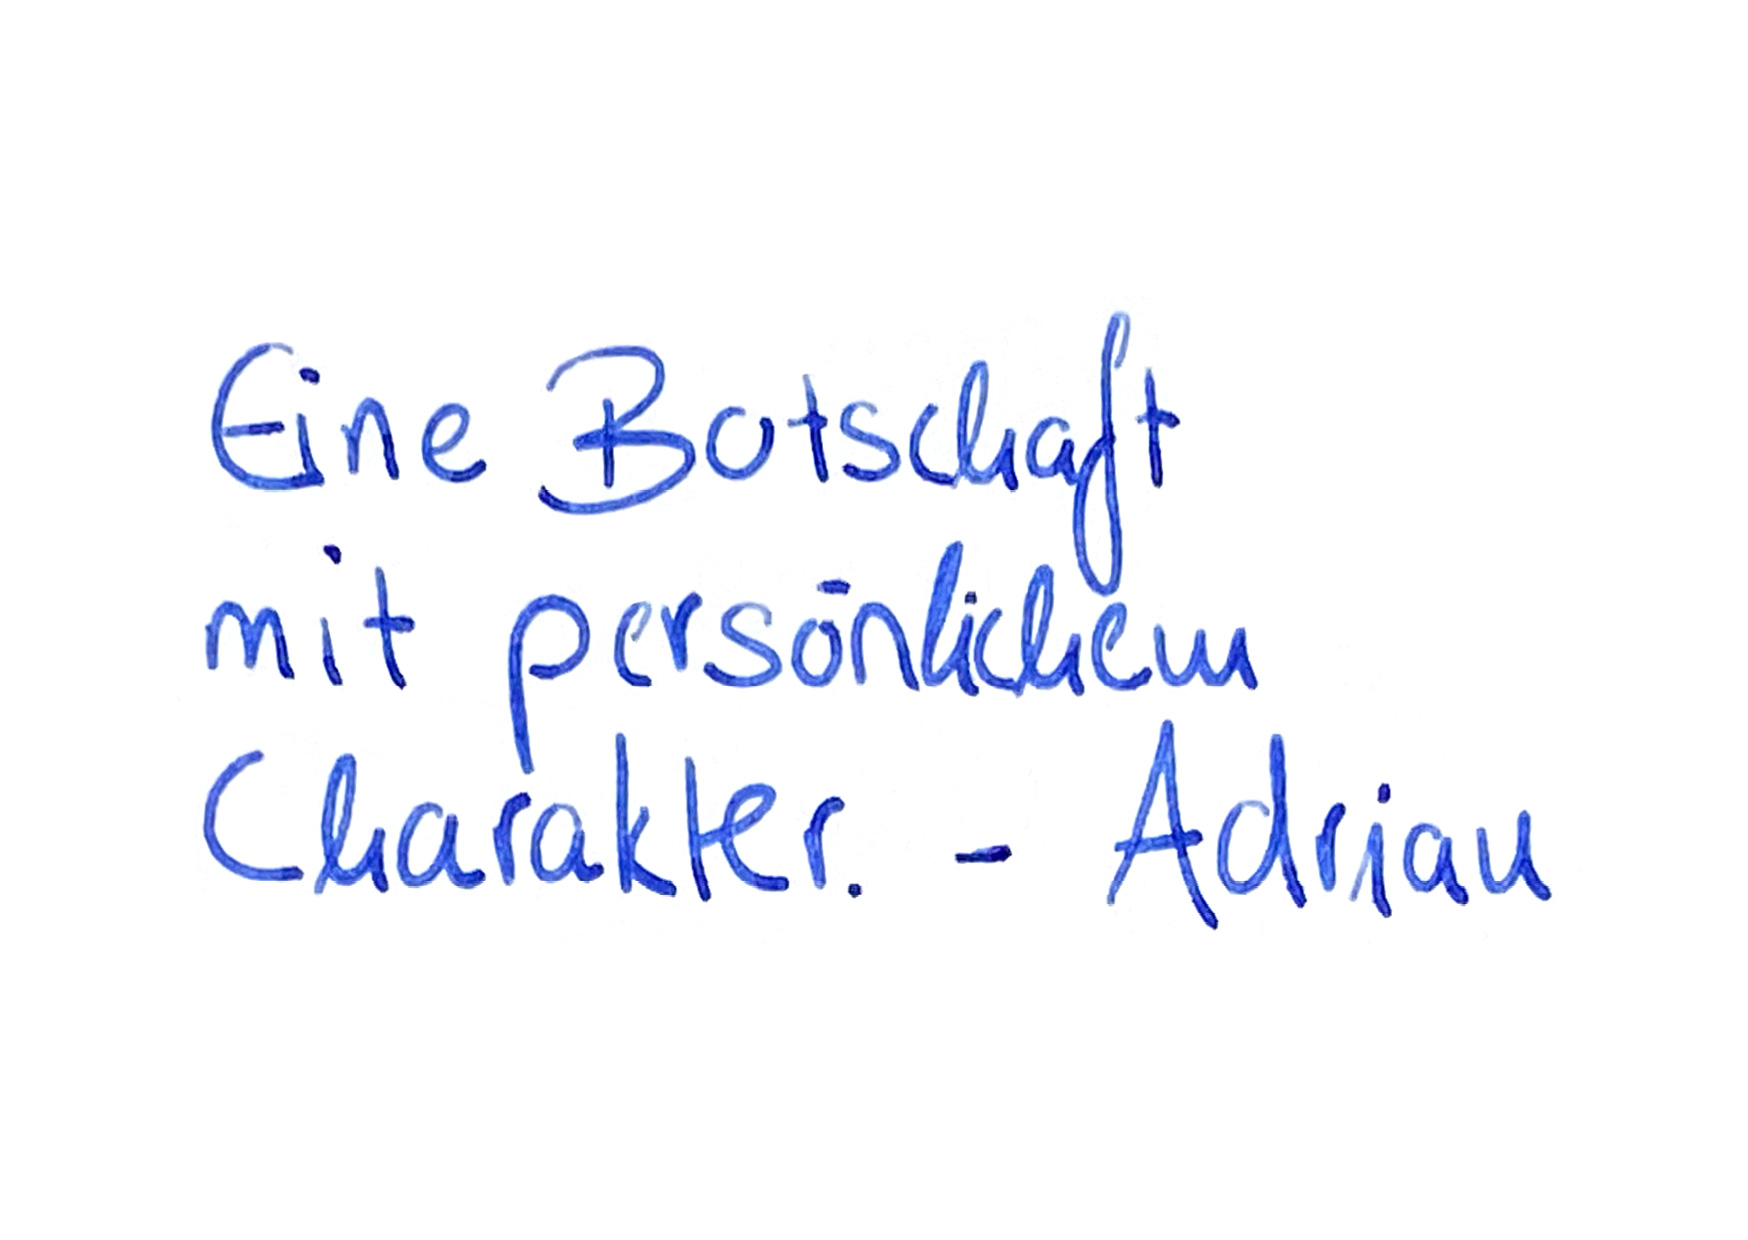 Eine Botschaft
mit persönlichem
Charakter. - Adrian